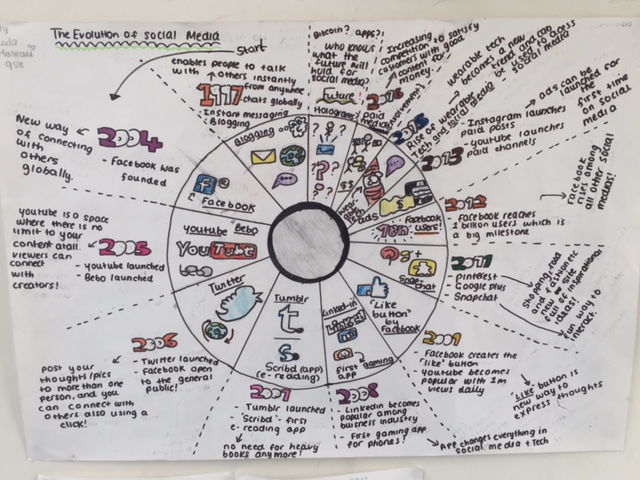 The Evolution of social Media
Start
enables people to talk
with others instantly
from anywhere
chats globally
1997
Instant messaging
Blogging
2004
- Facebook was
founded
New way
of connecting
with
others
globally.
2005
- youtube launched
- Bebo launched
youtube is a space
where there is no
limit to your
content at all.
viewers can
connect
with
creators!
2006
- Twitter launched
- Facebook open
to the general
public!
Post your
thoughts/pics
to more than one
person, and you
can connect with
others also using a
click!
2007
- Tumblr launched
'Scribd' - first
e-reading app
no need for heavy
books anymore!
2008
- Linkedin becomes
popular among
business industry
- First gaming app
for phones!
App changes everything in
social media + Tech
2009
Facebook creates the
"like" button
youtube becomes
popular with 1m
views daily
LIKE button is
new way to
express thoughts
2011
- Pinterest
- Google plus
- Snapchat
fun way to
interact.
2012
- Facebook reaches
1 billion users which is
a big milestone
Facebook
rises among
all other social
medias!
2013
- Instagram launches
paid posts
- youtube launches
paid channels
ads can be
launched for
the
first time
on social
media
2015
Rise of wearable
Tech and social media
wearable tech
becomes a new
trend and can
be used to access
social media
2016
Increasing
competition to satisfy
customers with good
content for
money
Future!
Bitcoin? apps?
who knows
what the
future will
hold for
social media?
Holograms?
paid
media
Blogging
Facebook
youtube Bebo
YouTube
bebo
Twitter
Tumblr
t
Scribd (app)
(e-reading)
Linked-in
Linked in
first gaming
app
"Like
button"
by
Facebook
g+
Snap
chat
Facebook
users!
ads